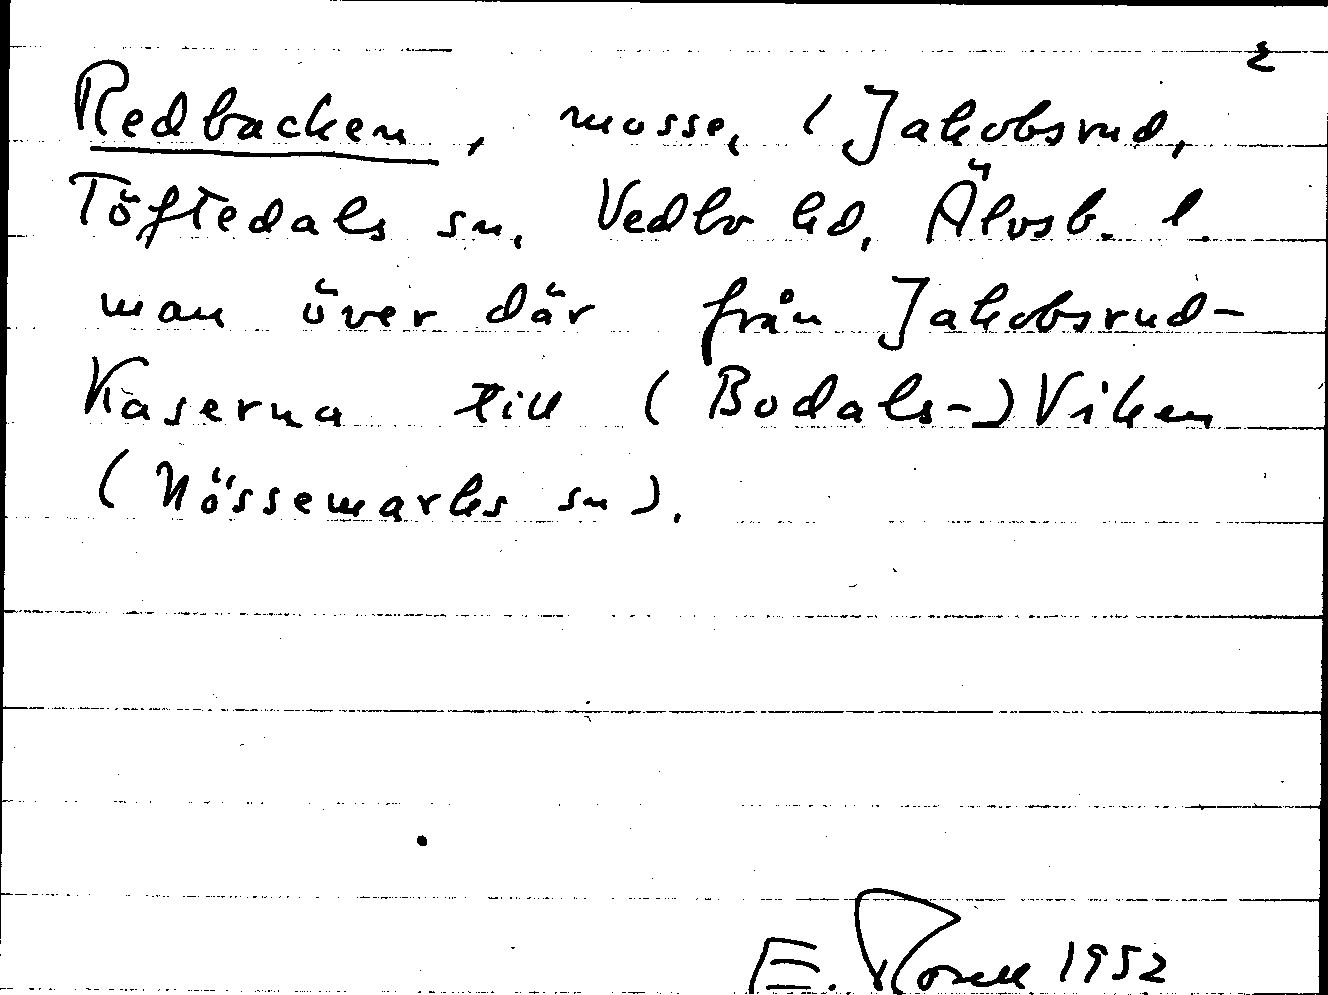 2
Redbacken, mosse, (Jakobsrud,
Töftedals sn, Vedbo hd, Älvsb. l.
man över där från Jakobsrud-
Kaserna till (Bodals-) Viken
(Nössemarks sn).
E. Rosell 1952